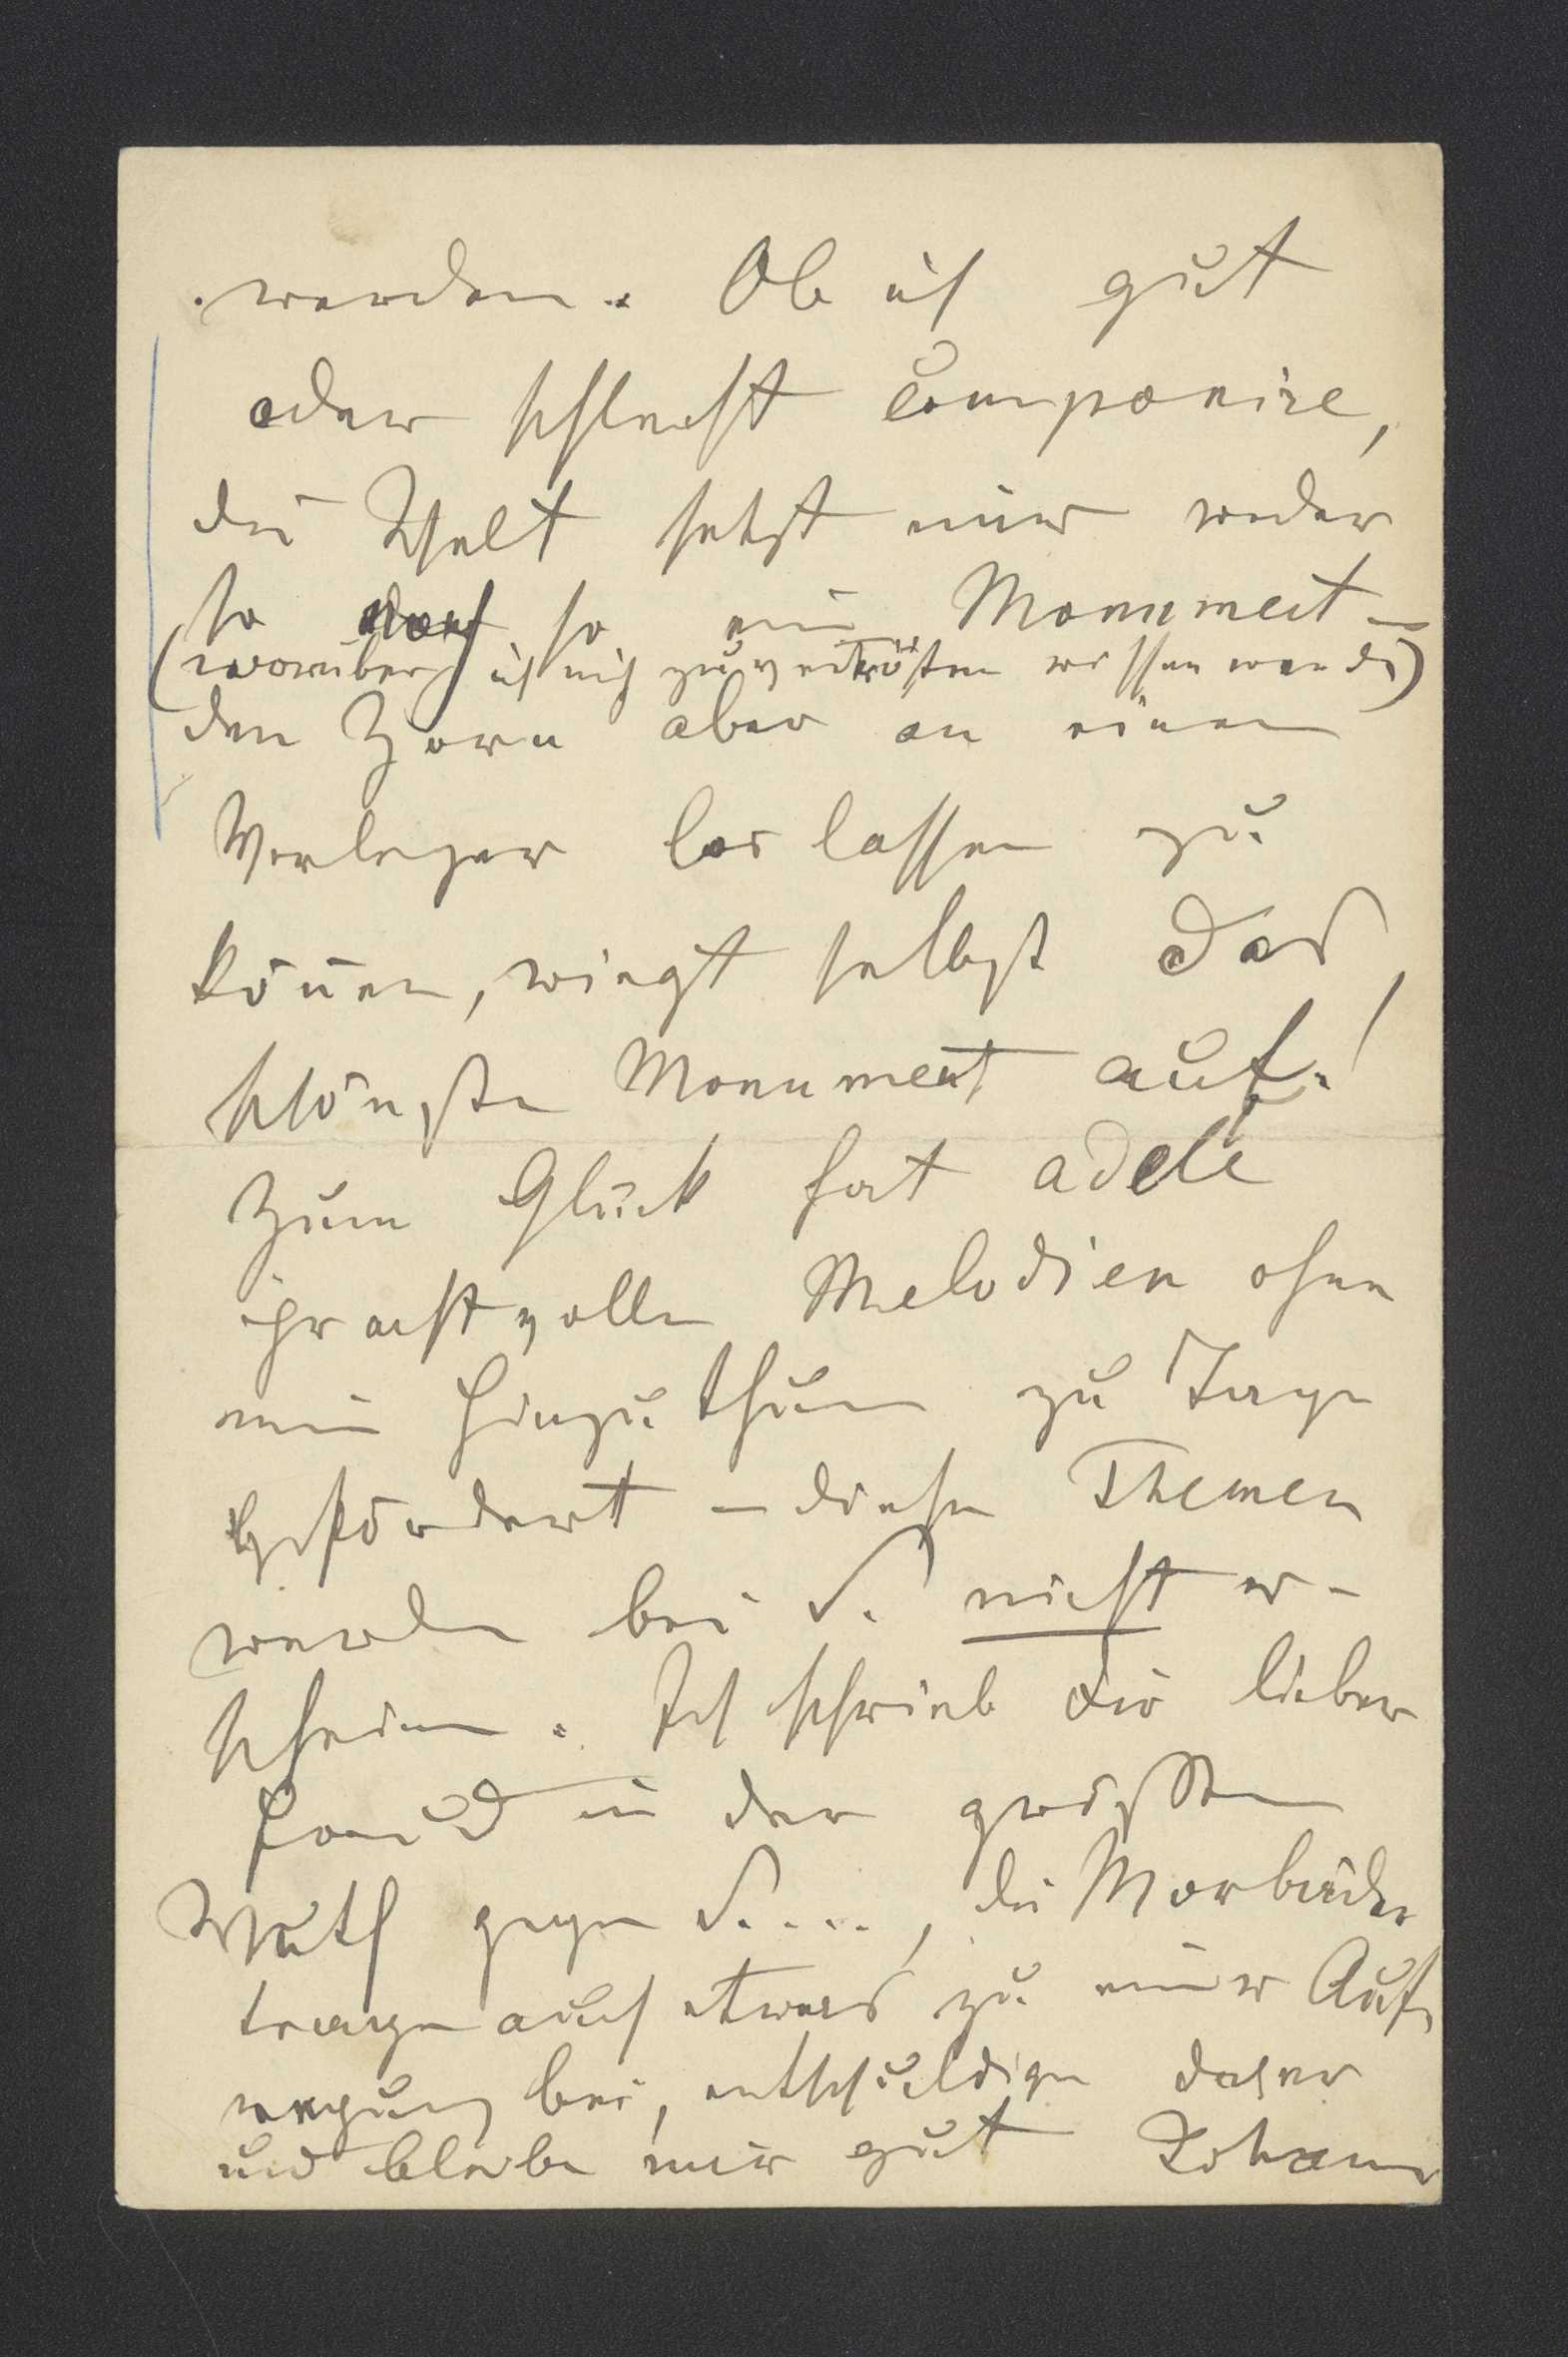 werden. Ob ich gut
oder schlecht componire,
die Welt setzt mir weder
so noch so ein Monument –
(worüber ich mich zu vertrösten wissen werde)
den Zorn aber an einem
Verleger los lassen zu
können, wiegt selbst das
schönste Monument auf!
Zum Glück hat Adele
ihr achtvolle Melodien ohne
mein Hinzuthun zu Tage
gefördert – diese Themen
werden bei S. nicht er-
scheinen. Ich schrieb die lieber
in der größten
Wuth gegen S...., die Moorbäder
tragen auch etwas zu einer Auf
regung bei, entschuldige daher
und bleibe mir gut Johann